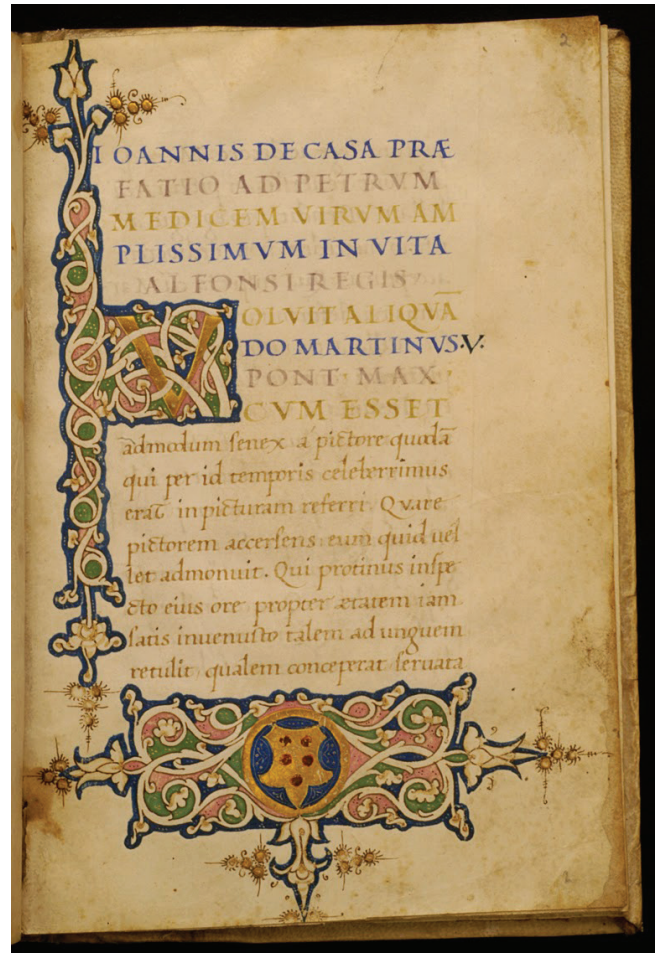 2
IOANNIS DE CASA PRÆ
FATIO AD PETRVM
MEDICEM VIRVM AM
PLISSIMVM IN VITA
ALFONSI REGIS
VOLVIT ALIQVĀ
DO MARTINVS·V·
PONT· MAX·
CVM ESSET
admodum senex a pictore quodā
qui per id temporis celeberrimus
erat in picturam referri. Quare
pictorem accersens: eum quid uel
let admonuit. Qui protinus inspe
cto eius ore propter ætatem iam
satis inuenusto talem ad unguem
retulit, qualem conceperat seruata
2